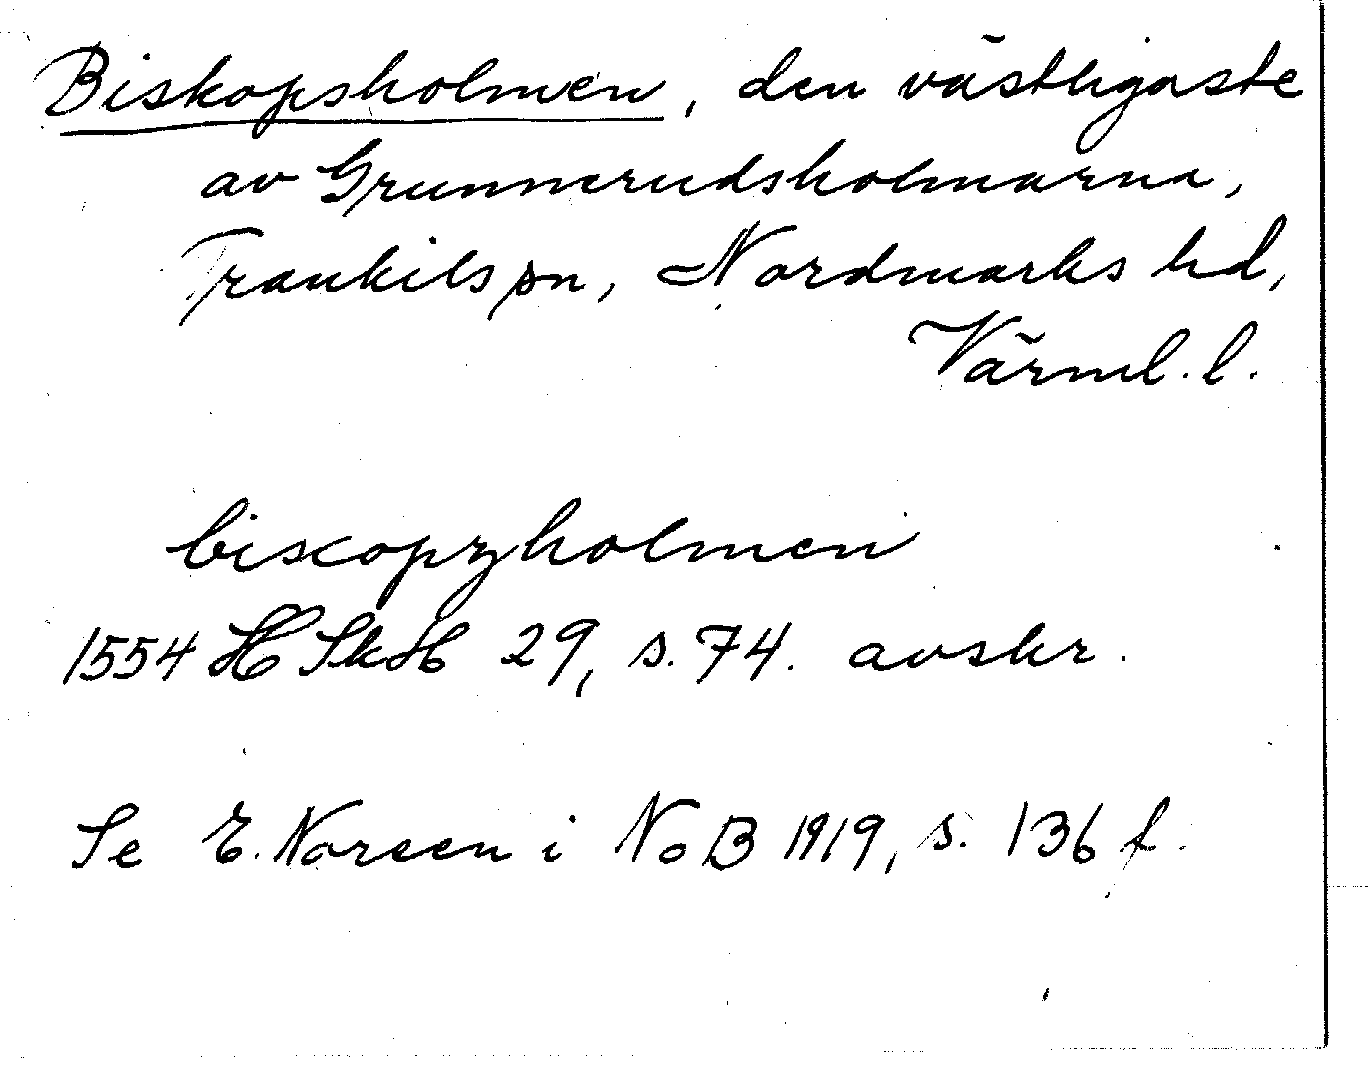 Biskopsholmen, den västligaste
av Grunnerudsholmarna,
Trankils sn, Nordmarks hd,
Värml. l.
biscopzholmen
1554 HSkH 29, s. 74. avskr.
Se E. Noreen i NoB 1919, s. 136 f.